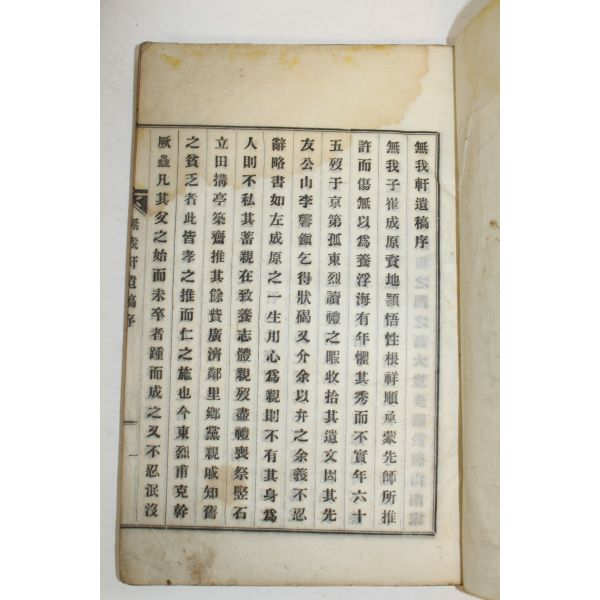 無我軒遺稿序
無我子崔成原資地顯悟性根祥順亟蒙先師所推
許而傷無以爲養浮海有年懼其秀而不實年六十
五歿于京第孤東烈讀禮之暇收拾其遺文因其先
友公山李磬鎭乞得狀碣又介余以弁之余義不忍
辭略書如左成原之一生用心爲親則不有其身爲
人則不私其蓄親在致養志體親歿盡禮喪祭竪石
立田搆亭築齋推其餘貲廣濟鄰里鄕黨親戚知舊
之貧乏者此皆孝之推而仁之施也今東烈甫克幹
厥蠱凡其父之始而未卒者踵而成之又不忍泯沒
無我軒遺稿序
一